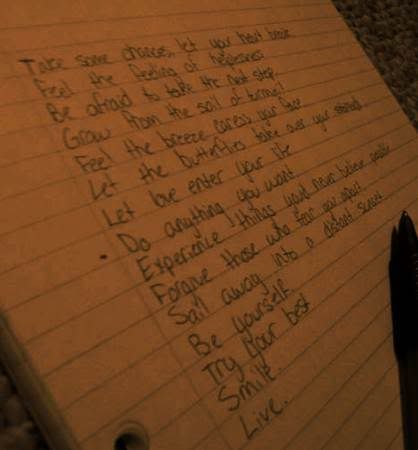 Take some chances, let your heart break
Feel the feeling of helplessness
Be afraid to take the next step.
Grow from the soil of turmoil
Feel the breeze caress your face
Let the butterflies take over your stomach
Let love enter your life
Do anything you want.
Experience things you'd never believe possible
Forgive those who tear you apart
Sail away into a distant sunset
Be yourself.
Try your best
Smile.
Live.